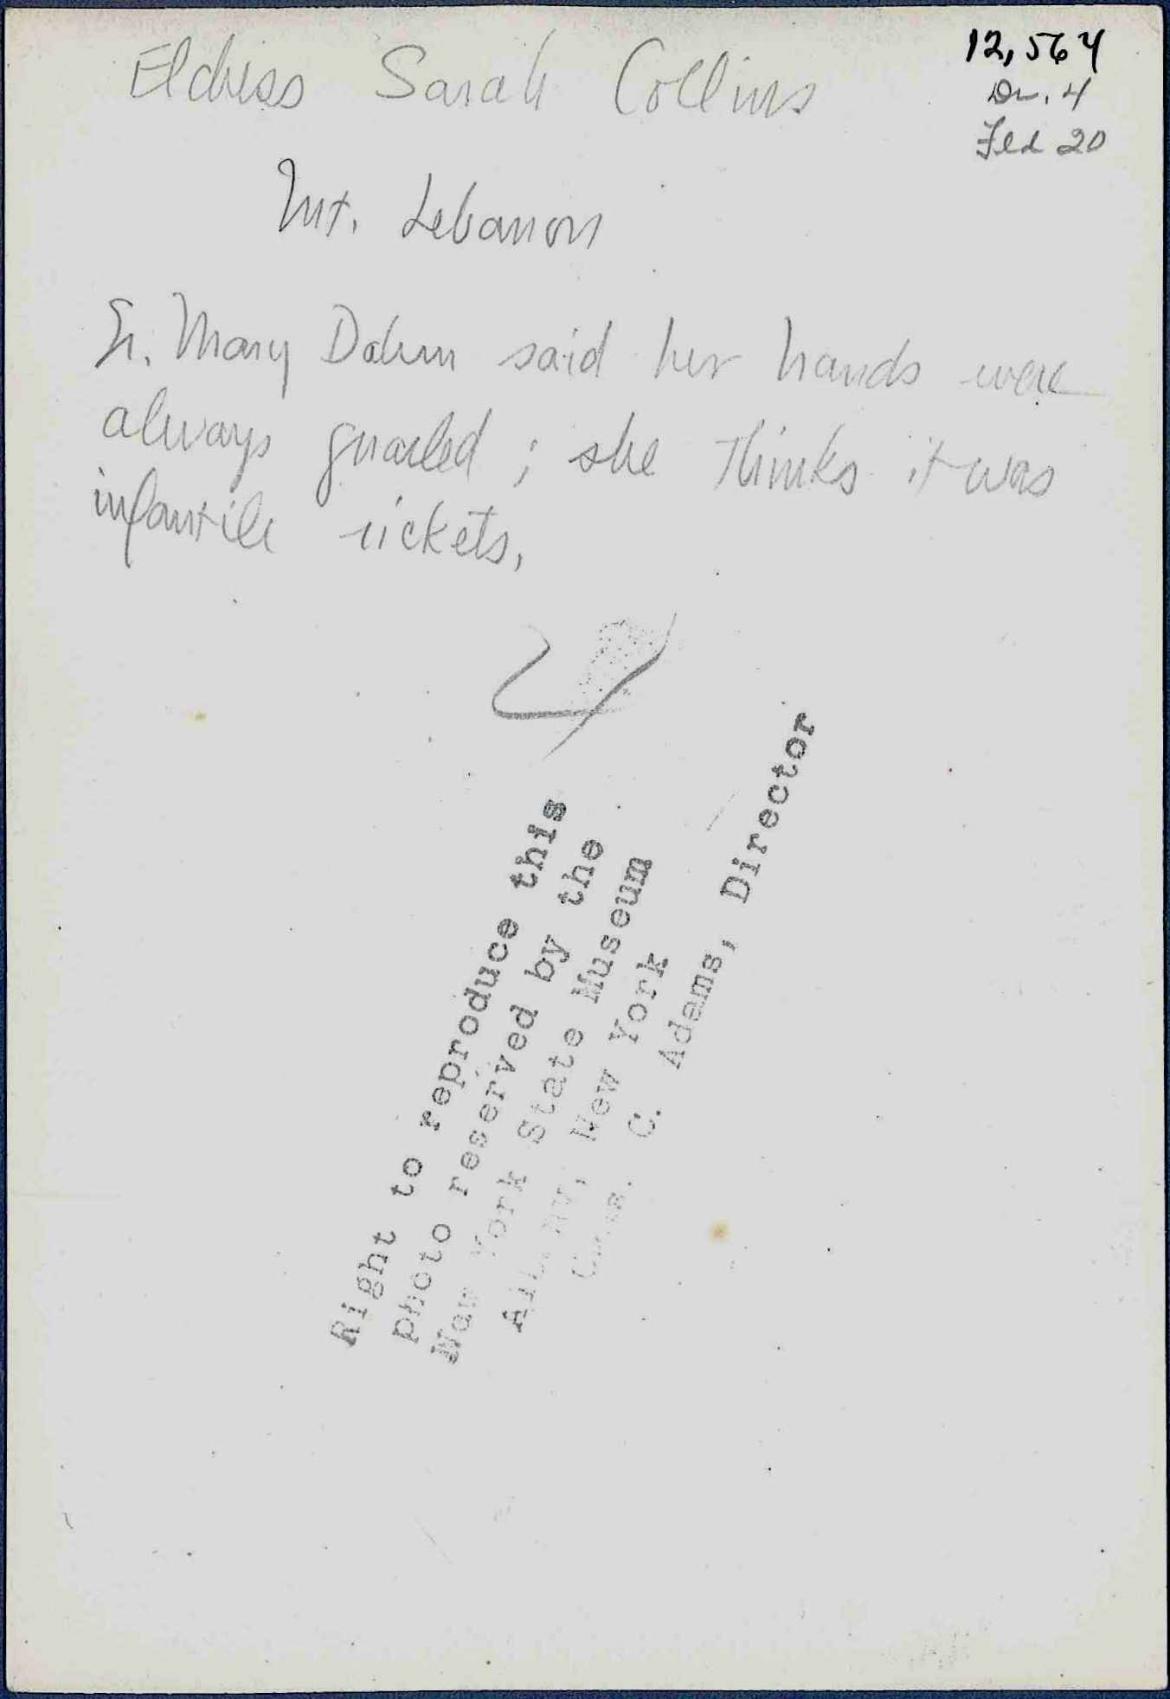 Eldress Sarah Collins
12,564
Dr. 4
Fld 20
Mt. Lebanon
Sr. Mary Dahm said her hands were
always gnarled ; she thinks it was
infantile rickets,
Right to reproduce this
photo reserved by the
New York State Museum
Albany, New York
Chas. C. Adams, Director